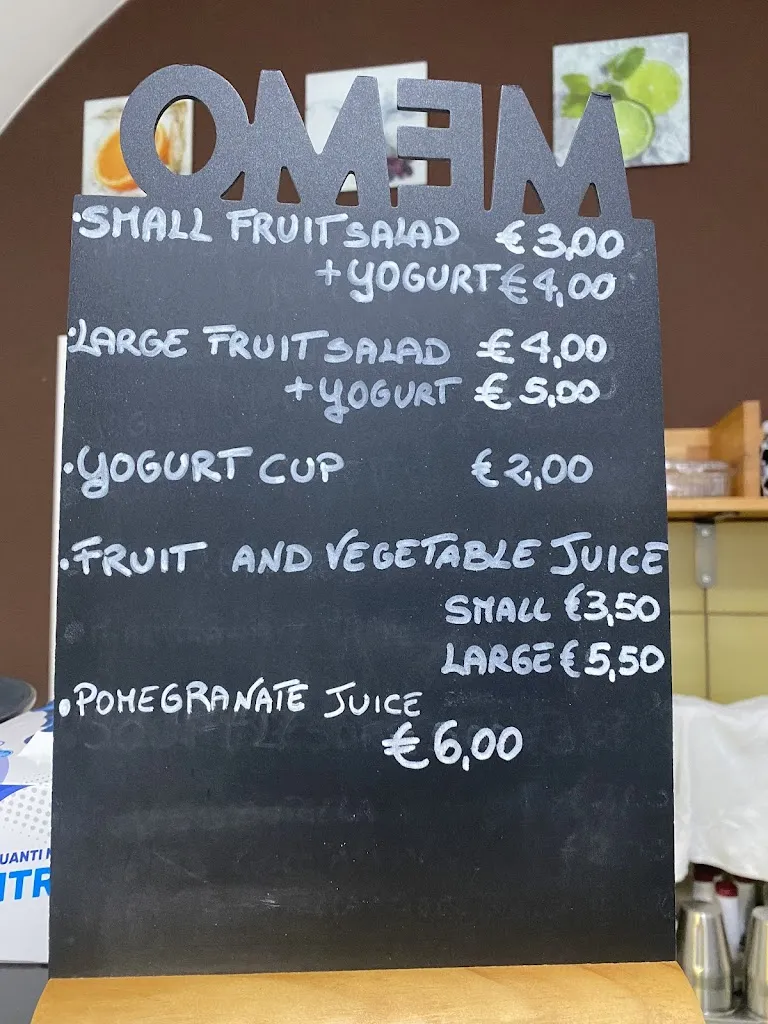 MEMO
·SMALL FRUIT SALAD €3,00
+YOGURT €4,00
·LARGE FRUIT SALAD €4,00
+YOGURT €5,00
·YOGURT CUP €2,00
·FRUIT AND VEGETABLE JUICE
SMALL €3,50
LARGE €5,50
·POMEGRANATE JUICE
€6,00
UANTI
ITR